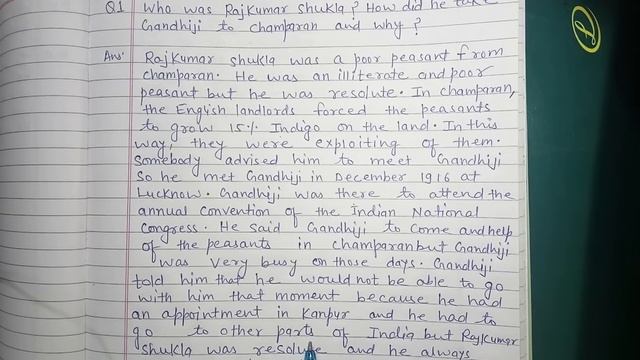 Q1 Who was Rajkumar Shukla? How did he take
Gandhiji to champaran and why?
Ans: Rajkumar Shukla was a poor peasant from
champaran. He was an illiterate and poor
peasant but he was resolute. In champaran,
the English landlords forced the peasants
to grow 15% Indigo on the land. In this
way, they were exploiting of them.
Somebody advised him to meet Gandhiji
So he met Gandhiji in December 1916 at
Lucknow. Gandhiji was there to attend the
annual convention of the Indian National
Congress. He said Gandhiji to come and help
of the peasants in champaran but Gandhiji
was very busy on those days. Gandhiji
told him that he would not be able to go
with him that moment because he had
an appointment in Kanpur and he had to
go to other parts of India but Rajkumar
Shukla was resolute and he always